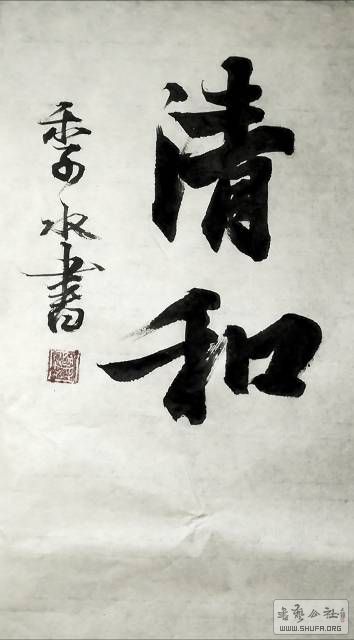 清和
季水書
书藝公社
WWW.SHUFA.ORG